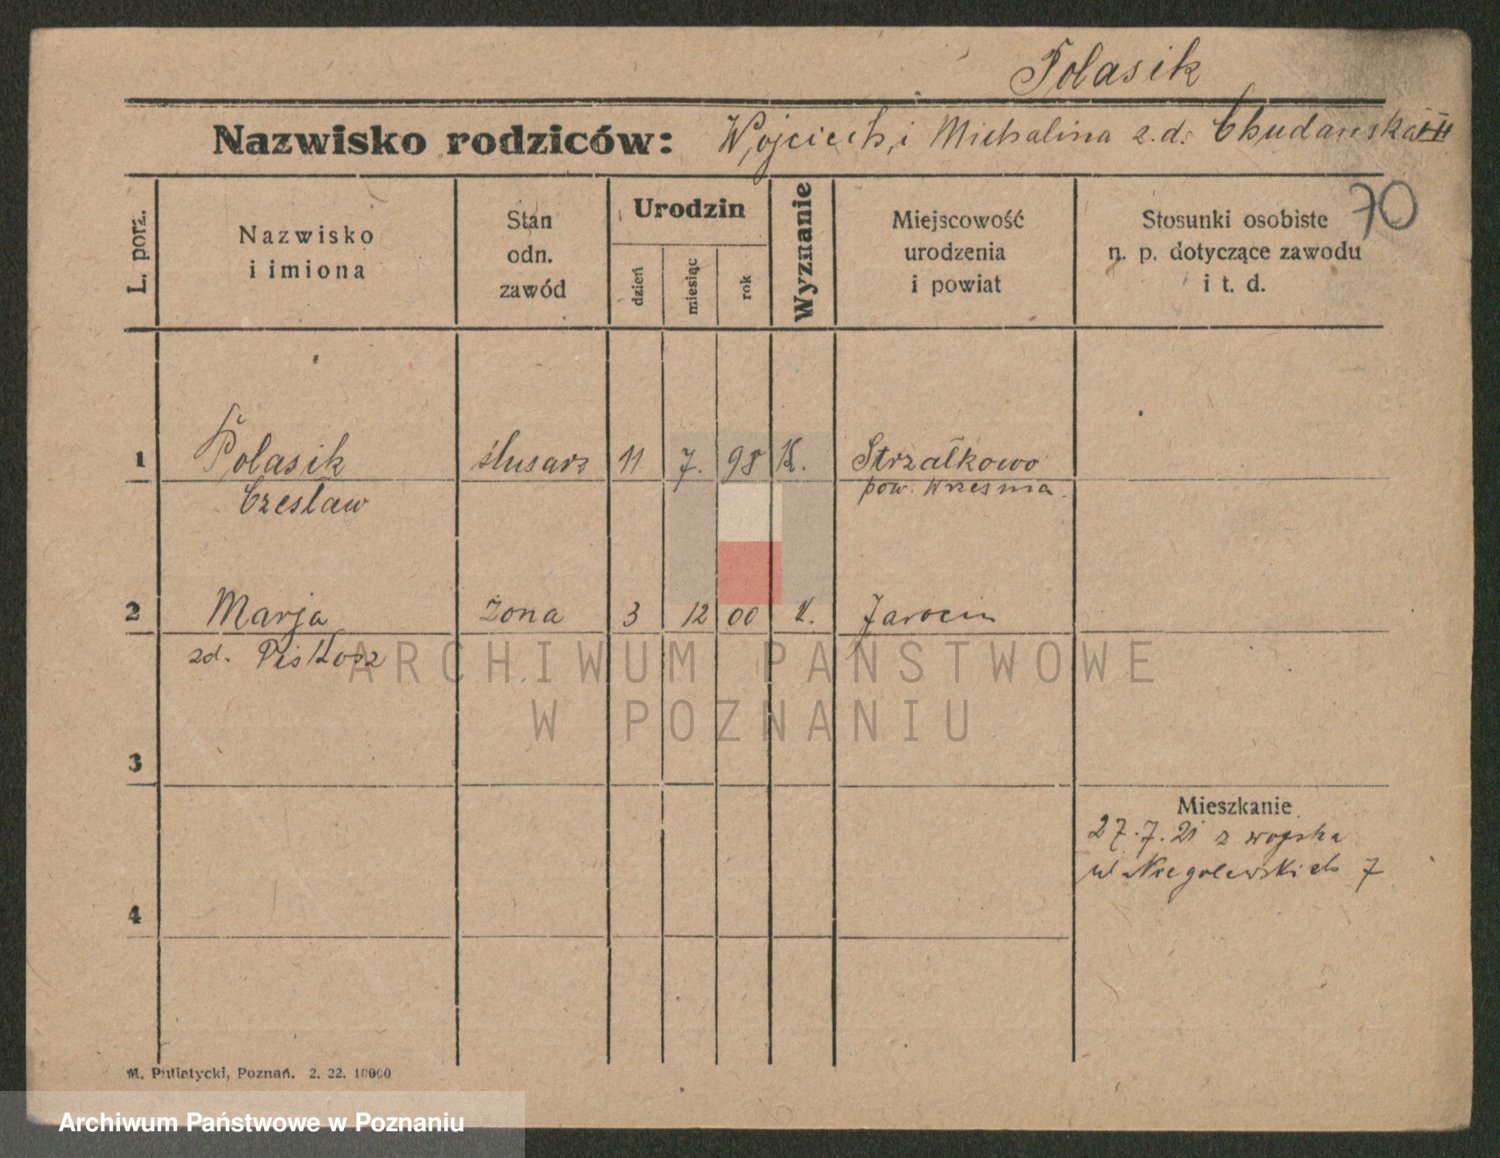 Polasik
Nazwisko rodziców: Wojciech, i Michalina z.d. Chudańska
70
L. porz.
Nazwisko
i imiona
Stan
odn.
zawód
Urodzin
dzień
miesiąc
rok
Wyznanie
Miejscowość
urodzenia
i powiat
Stosunki osobiste
n. p. dotyczące zawodu
i t. d.
1 Polasik ślusarz 11 7. 98 K. Strzałkowo
Czesław pow. Wrzesnia.
2 Marja żona 3 12 00 K. Jarocin
zd. Piskosz
ARCHIWUM PAŃSTWOWE
W POZNANIU
3
Mieszkanie
27.7.21 z wojska
ul Niegolewskich 7
4
M. Putiatycki, Poznań. 2. 22. 10000
Archiwum Państwowe w Poznaniu